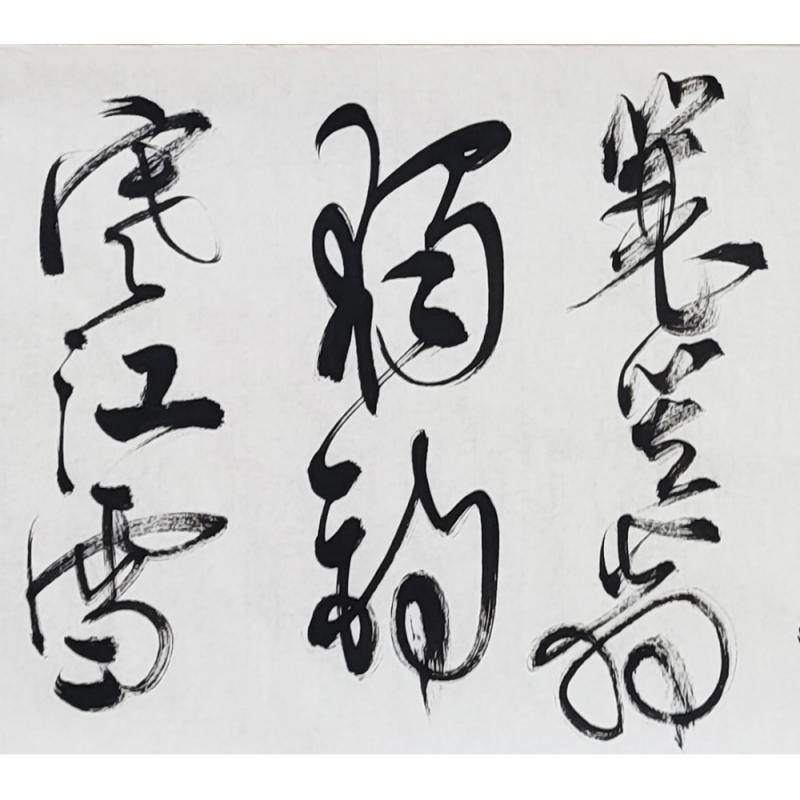 蓑笠翁
獨釣
寒江雪